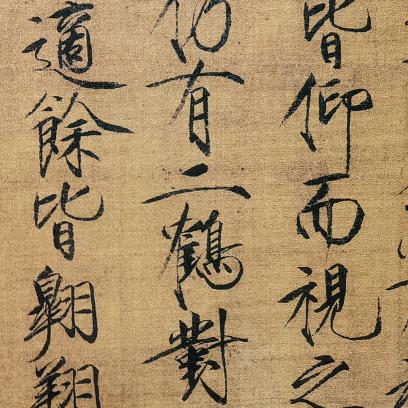 皆仰而視之
仍有二鶴對
適餘皆翺翔